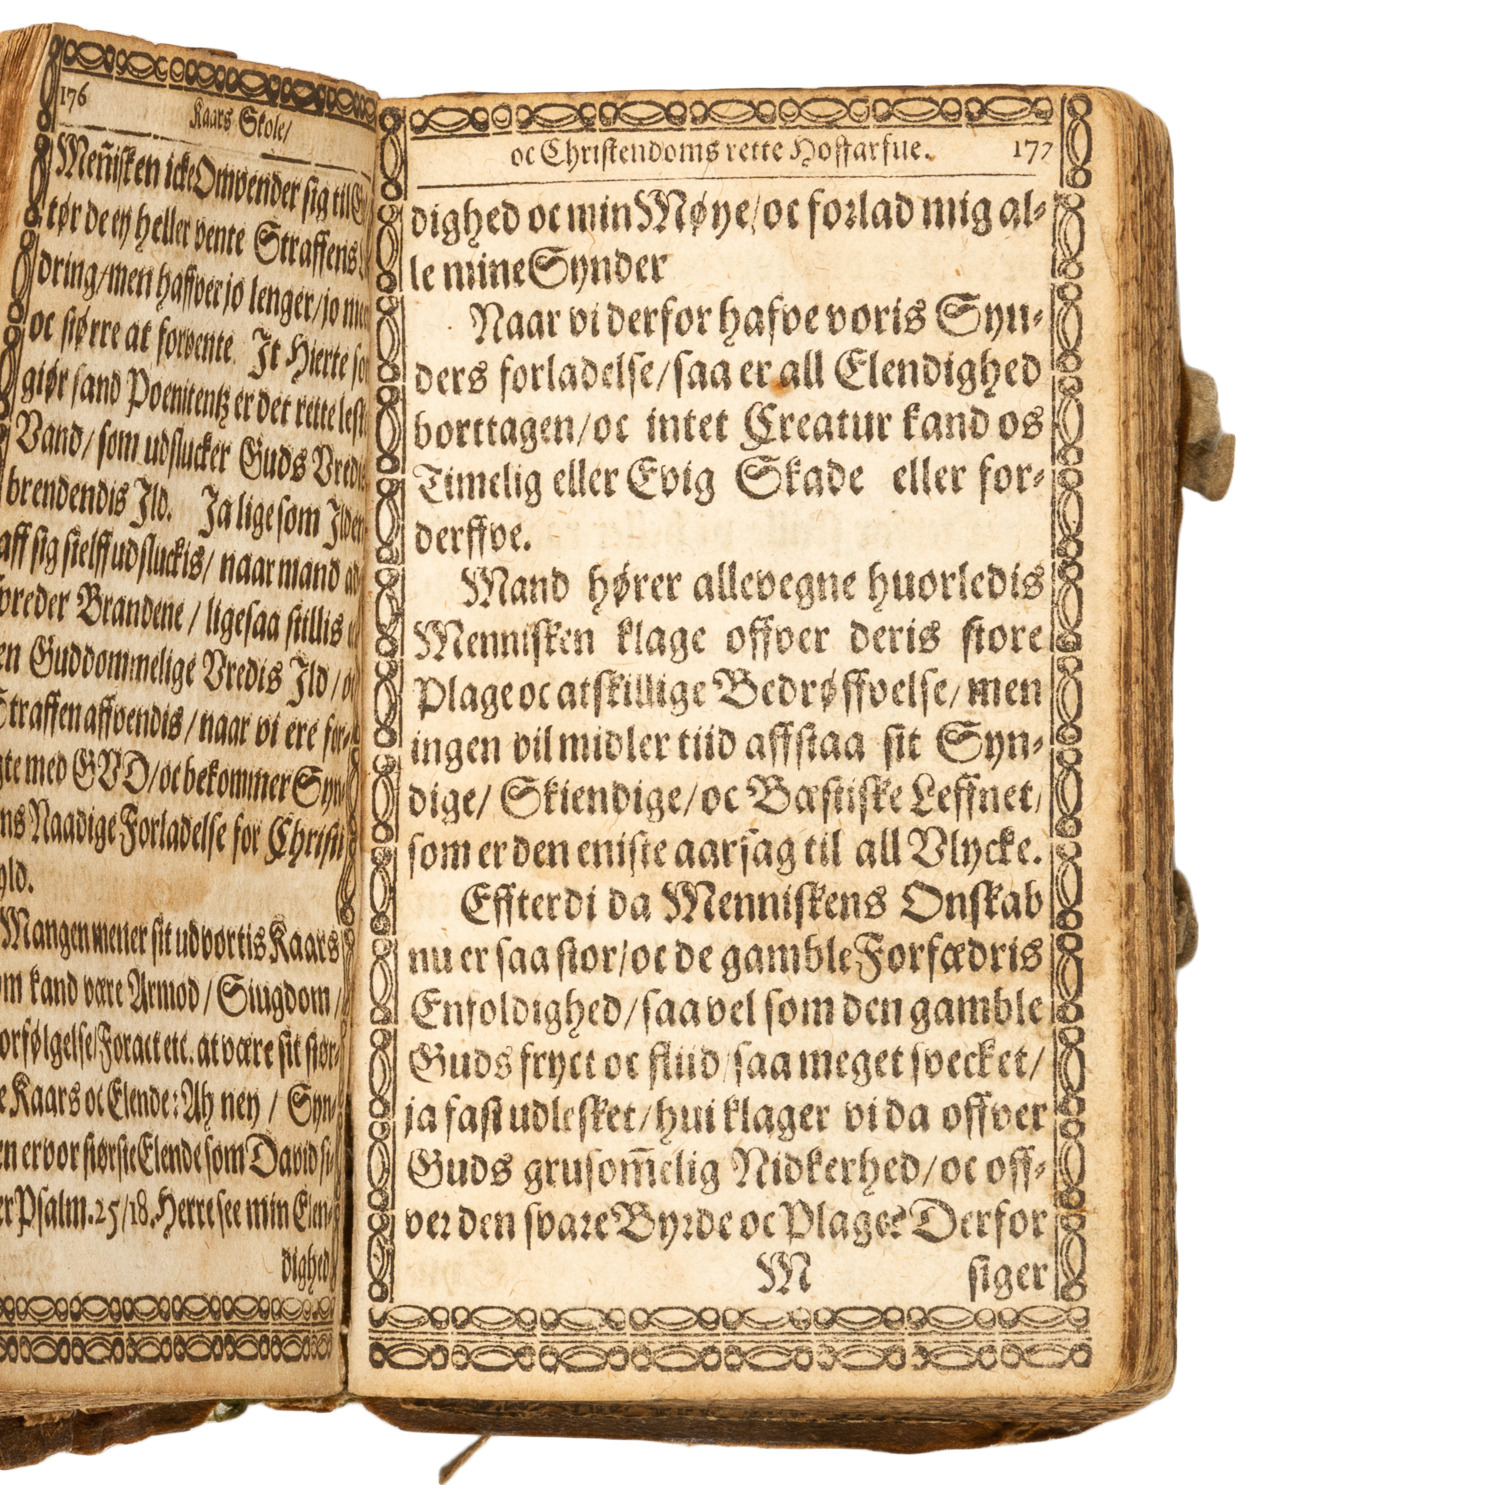 176
Kaars Skole/
Meñisken icke Omvender sig til
tør de ey heller vente Straffens
dring/men haffver jo lenger/jo
oc større at forvente. It Hierte
giør sand Poenitentz er det rette
Vand/ som udslucker Guds
brendendis Ild. Ja lige som
aff sig sielff udsluckis/ naar mand
Brandene / ligesaa stillis
Guddommelige Vredis Ild /
affvendis/ naar vi ere
med GVD/oc bekommer
Naadige Forladelse for Christi
Mangen mener sit udvortis Kaars
kand være Armod / Siugdom /
Foract etc. at være sit stør-
Kaars oc Elende: Ah ney / Syn-
er vor største Elende som David
Psalm. 25/18. Herre see min Elen-
dighed
oc Christendoms rette Hoffarfue.
177
dighed oc min Møye/oc forlad mig al-
le mine Synder
Naar vi derfor hafve voris Syn-
ders forladelse/saa er all Elendighed
borttagen/oc intet Creatur kand os
Timelig eller Evig Skade eller for-
derffve.
Mand hører allevegne huorledis
Mennisken klage offver deris store
Plage oc atskillige Bedrøffvelse/ men
ingen vil midler tiid affstaa sit Syn-
dige/ Skiendige/oc Bæstiske Leffnet/
som er den eniste aarsag til all Vlycke.
Effterdi da Menniskens Onskab
nu er saa stor/oc de gamble Forfædris
Enfoldighed/saa vel som den gamble
Guds fryct oc fliid/saa meget svecket/
ja fast udlesket/hui klager vi da offver
Guds grusom̃elig Nidkerhed/oc off-
ver den svare Byrde oc Plage? Derfor
M
siger